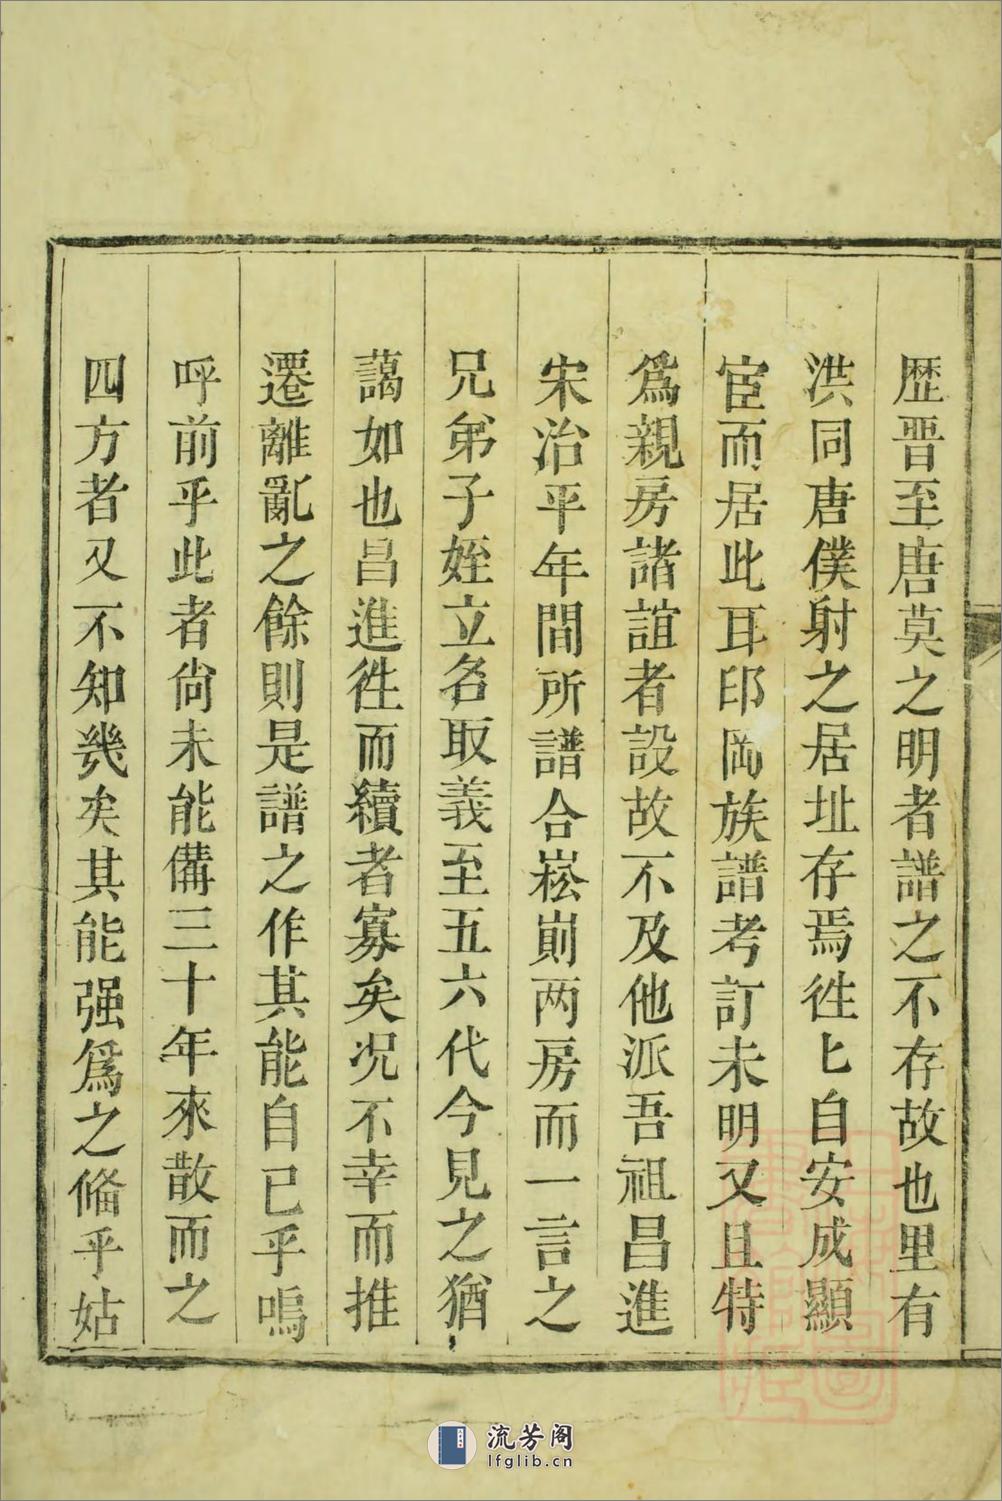 歴晋至唐莫之明者譜之不存故也里有
洪同唐僕射之居址存焉徃匕自安成顯
宦而居此耳邱岡族譜考訂未明又且特
爲親房諸誼者設故不及他派吾祖昌進
宋治平年間所譜合崧崱两房而一言之
兄弟子姪立名取義至五六代今見之猶
藹如也昌進徃而續者寡矣况不幸而推
遷離亂之餘則是譜之作其能自已乎嗚
呼前乎此者尙未能備三十年來散而之
四方者又不知幾矣其能强爲之脩乎姑
流芳阁
lfglib.cn